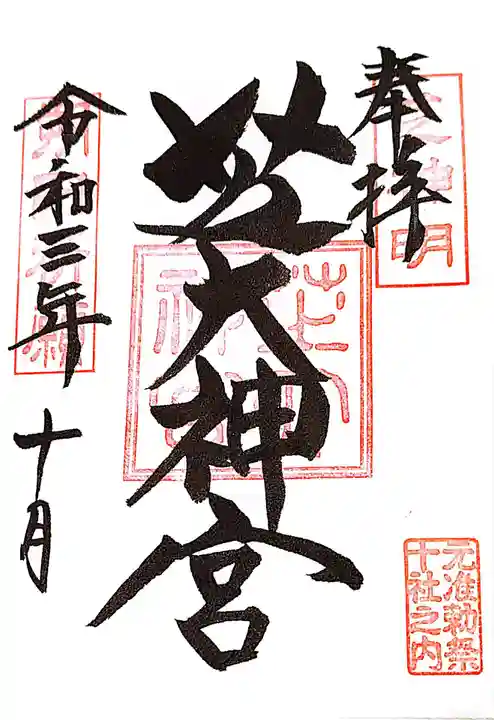 奉拝
芝大神宮
令和三年
十月
元准勅祭
十社之内